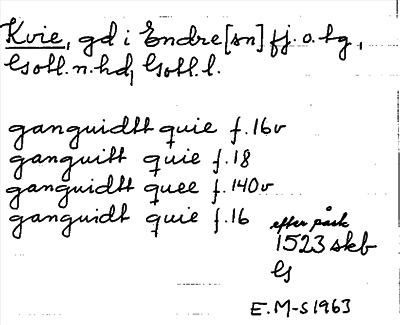 Kvie, gd i Endre[sn] fj. o. hg,
Gotl. n. hd, Gotl. l.
ganguidtt quie f. 16v
ganguitt quie f. 18
ganguidtt quee f. 140v
ganguidt quie f. 16
efter påsk
1523 skb
Gs
E. M-s 1963